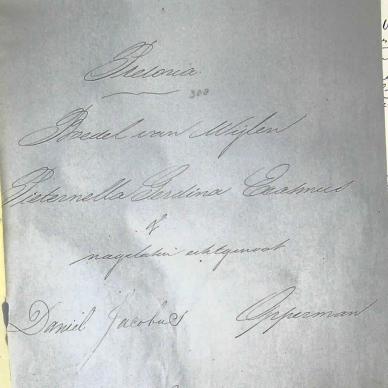 Pretoria
308
Boedel van Wijlen
Pieternella Gerdina Erasmus
of
nagelaten echtgenoot
Daniel Jacobus Opperman